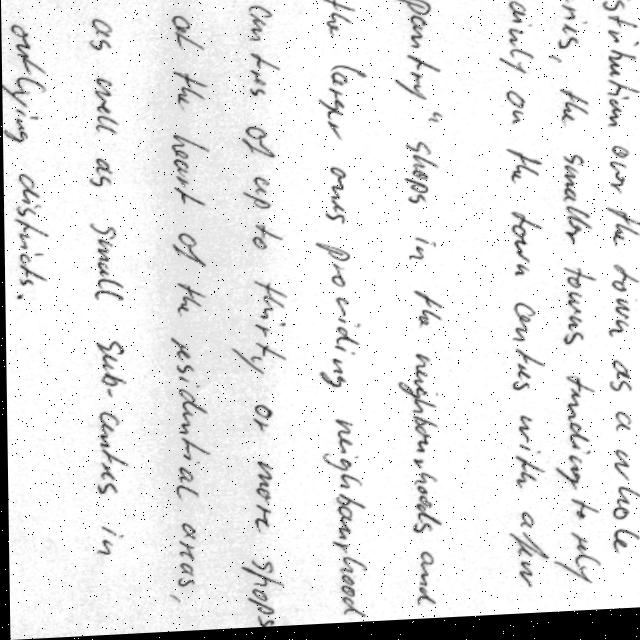 distribution over the town as a whole
the smaller towns tending to rely
mainly on the town centres with a few
"pantry" shops in the neighbourhoods and
the larger ones providing neighbourhood
centres of up to thirty or more shops
at the heart of the residential areas,
as well as small sub-centres in
outlying districts.